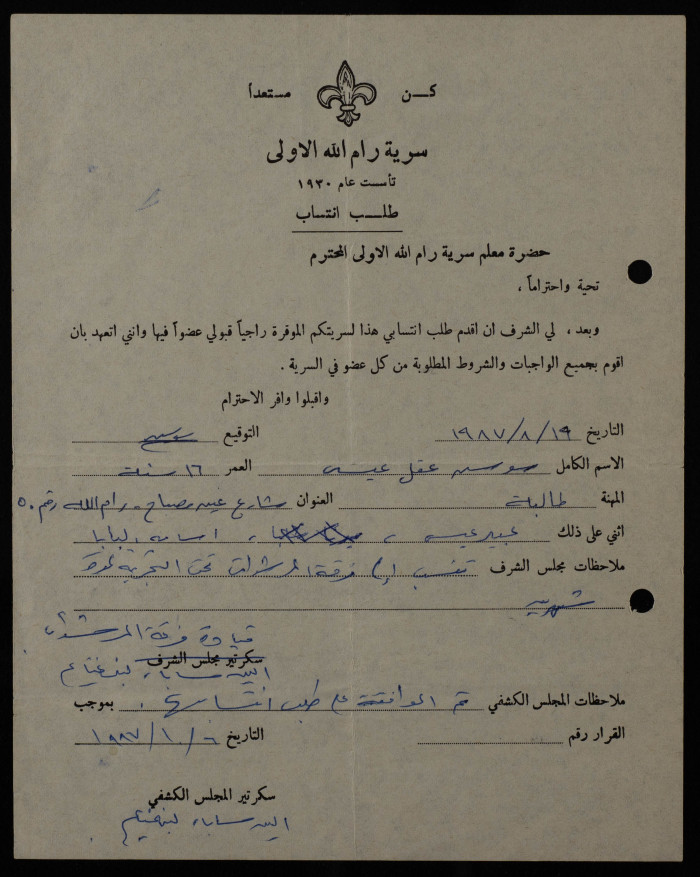 كـــن مستعداً
سرية رام الله الاولى
تأسست عام ١٩٣٠
طلـــب انتساب
حضرة معلم سرية رام الله الاولى المحترم
تحية واحتراماً ،
وبعد ، لي الشرف ان اقدم طلب انتسابي هذا لسريتكم الموقرة راجياً قبولي عضواً فيها وانني اتعهد بان
اقوم بجميع الواجبات والشروط المطلوبة من كل عضو في السرية .
واقبلوا وافر الاحترام
التاريخ ١٩٨٧/٨/١٩ التوقيع
الاسم الكامل سوسن عقل عيسى العمر ١٦ سنة
المهنة طالبة العنوان شارع مصباح رام الله رقم ٥٠
اثني على ذلك عبير عيسى ، اسامه البابا
ملاحظات مجلس الشرف تنسب إلى فرقة المرشدات تحت التجربة لمدة
شهرين
قيادة فرقة المرشدات
سكرتير مجلس الشرف
ملاحظات المجلس الكشفي تم الموافقة على طلب انتسابها . بموجب
القرار رقم التاريخ ١٩٨٧/١٠/٦
سكرتير المجلس الكشفي